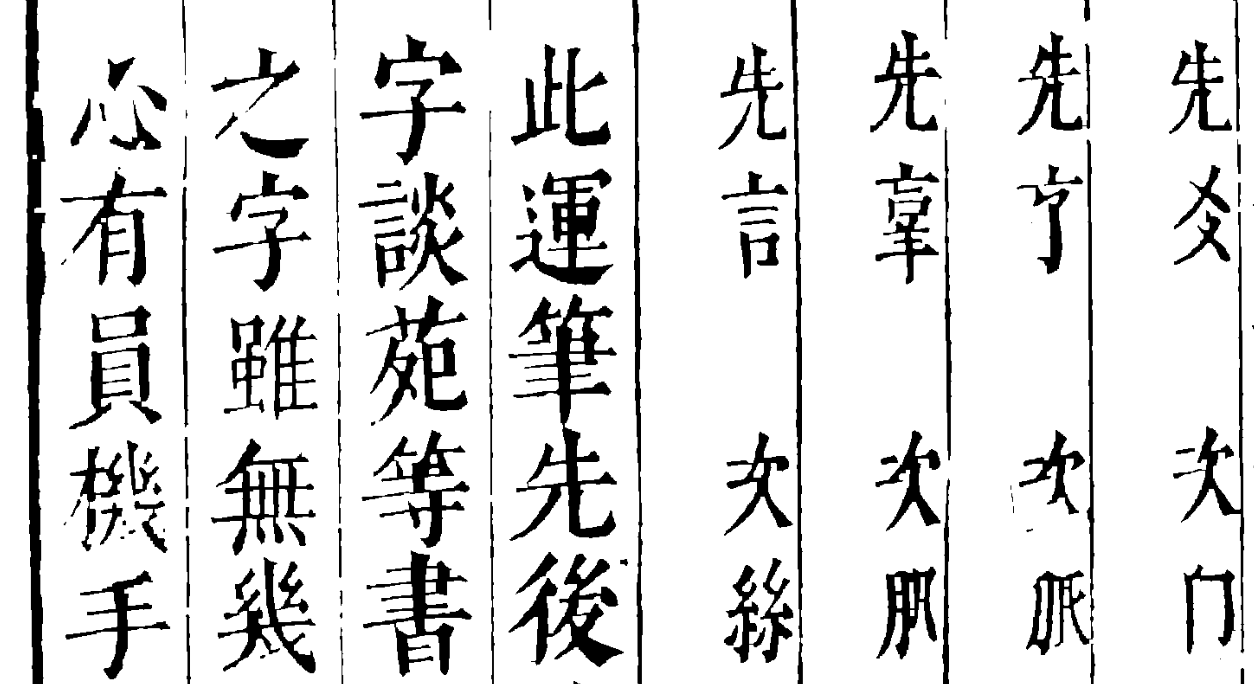 先 次冂
先 次
先 次
先言 次絲
此運筆先後
字談苑等書
之字雖無幾
必有員機手